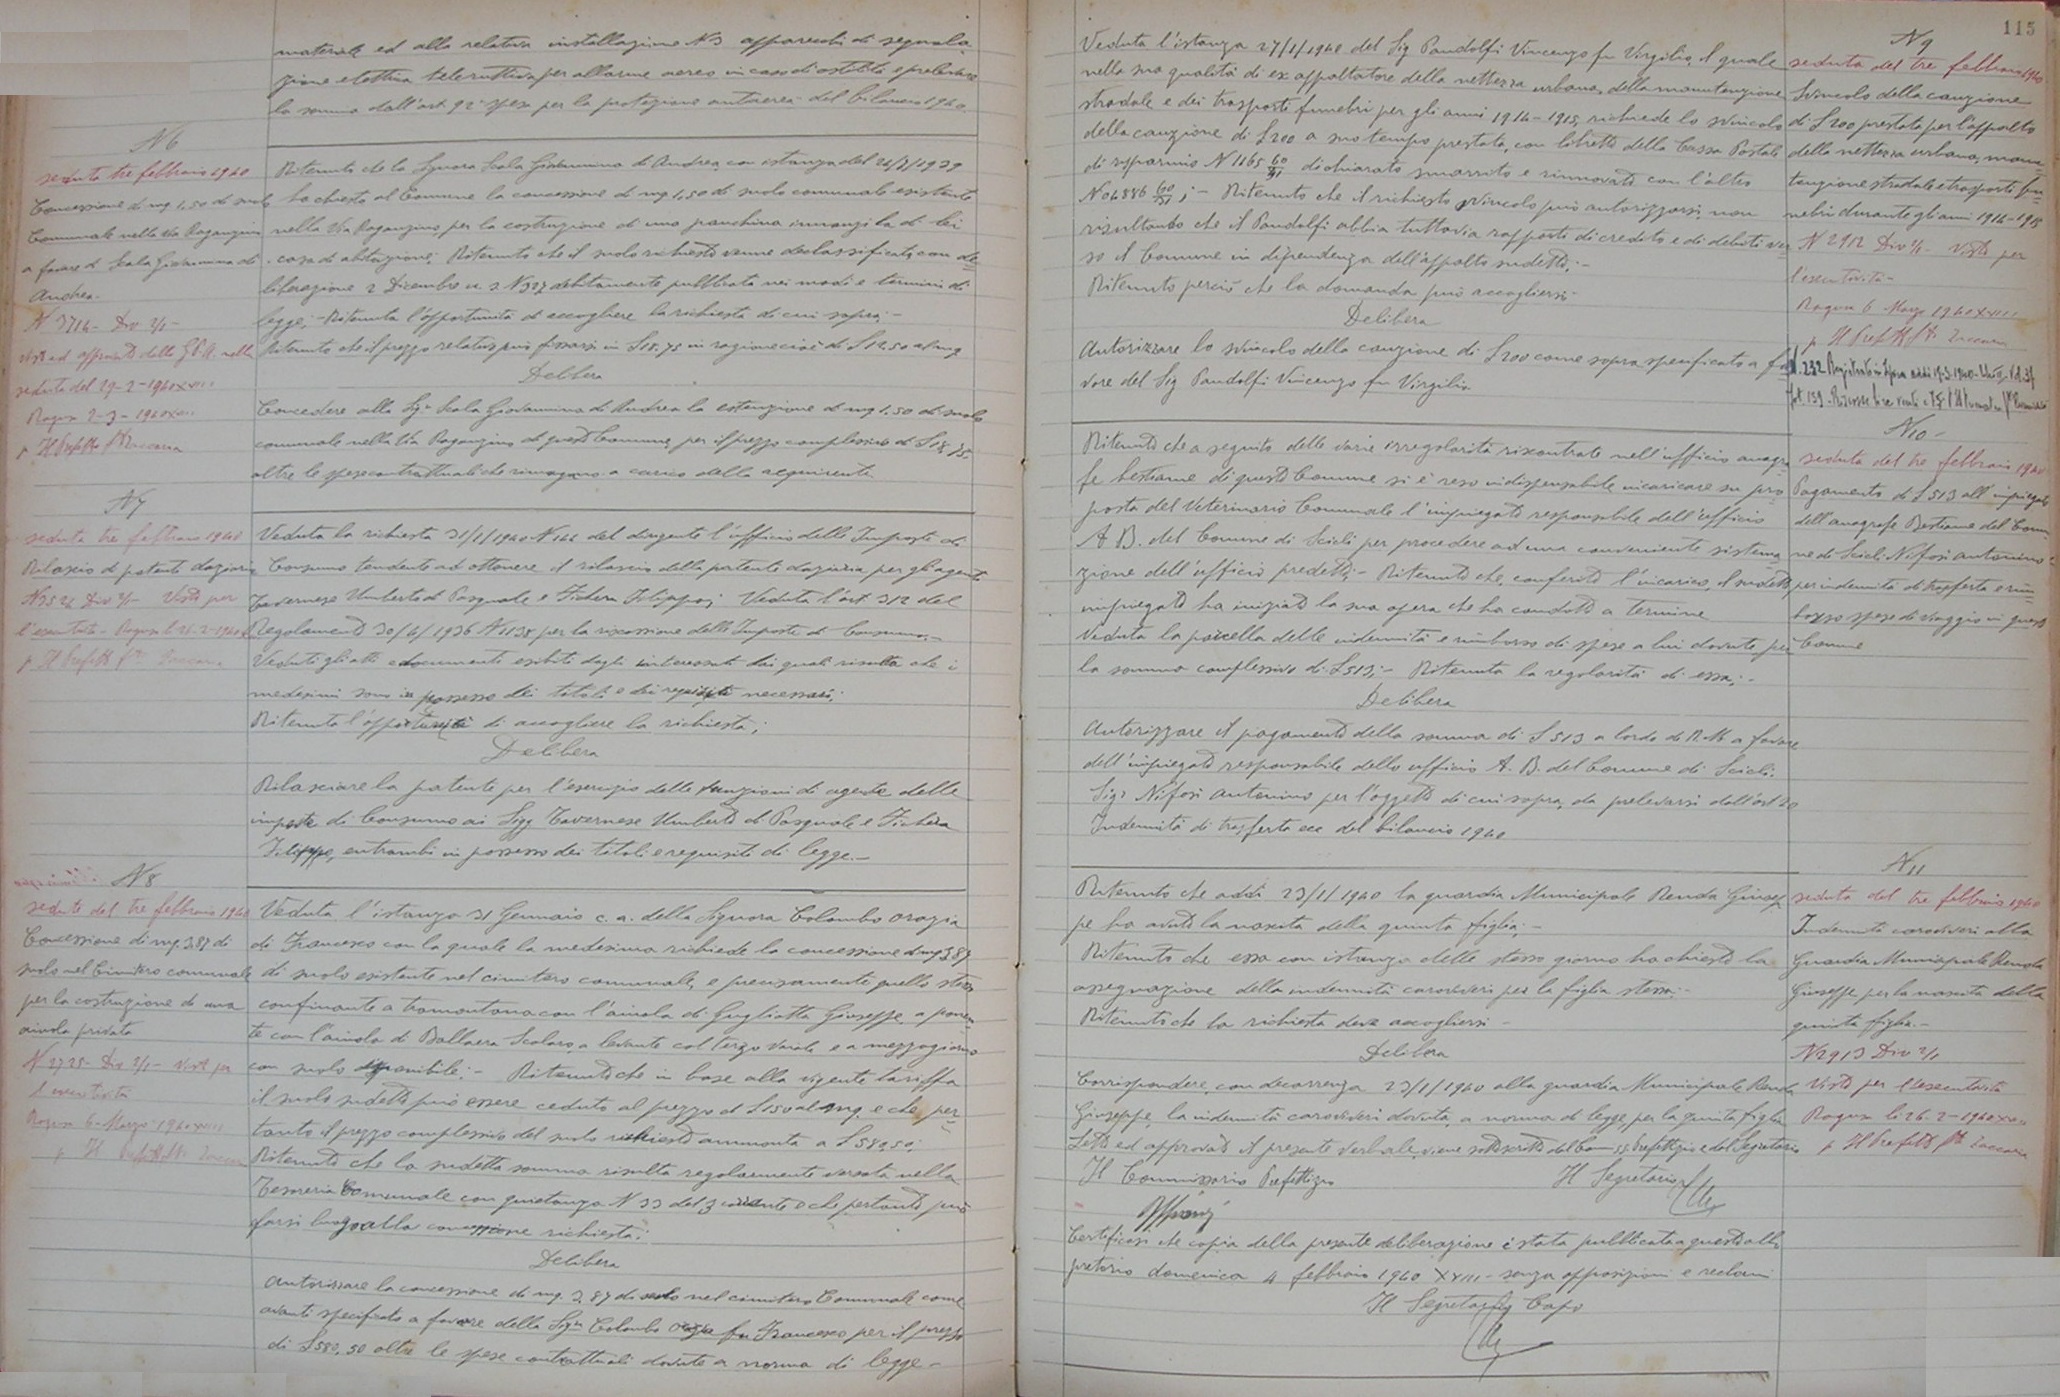 materiale ed alla relativa installazione N 3 apparecchi di segnala
zione elettrica teleruttiva per allarme aereo in caso di ostilità e prelevare
la somma dall'art 92 spese per la protezione antiaerea del bilancio 1940
N 6
seduta tre febbraio 1940
Concessione di mq 1,50 di suolo
Comunale nella Via Roganzino
a favore di Scala Giovannina di
Andrea-
N 3714 - Div 2/1 -
visto ed approvato dalla G.P.A. nella
seduta del 29-2-1940 XVIII
Ragusa 2-3-1940 XVIII
p Il Prefetto f° Zaccaria
Ritenuto che la Signora Scala Giovannina di Andrea, con istanza del
ha chiesto al Comune la concessione di mq 1,50 di suolo comunale esistente
nella Via Roganzino per la costruzione di una panchina innanzi la di lei
casa di abitazione; Ritenuto che il suolo richiesto venne declassificato con de
liberazione 2 Dicembre u. s. N 327 debitamente pubblicata nei modi e termini di
legge; - Ritenuta l'opportunità di accogliere la richiesta di cui sopra; -
Ritenuto che il prezzo relativo può fissarsi in £ 18,75 in ragione cioè di £ 12,50 al mq
Delibera
Concedere alla Sig.ra Scala Giovannina di Andrea la estenzione di mq 1,50 di suolo
comunale nella Via Roganzino di questo Comune, per il prezzo complessivo di £ 18,75.
oltre le spese contrattuali che rimangono a carico della acquirente
N 7
seduta tre febbraio 1940
Rilascio di patente daziaria
N 3524 Div 2/1 - Visto per
l'esecutività - Ragusa li 26-2-1940
p Il Prefetto f.to Zaccaria
Veduta la richiesta 31/1/1940 N 144 del dirigente l'ufficio delle Imposte di
Consumo tendente ad ottenere il rilascio della patente daziaria per gli agenti
Tavernese Umberto di Pasquale e Fichera Filippo; Veduto l'art 312 del
Regolamento 30/4/1936 N 1138 per la riscossione delle Imposte di Consumo; -
Veduti gli atti e documenti esibiti dagli interessati dai quali risulta che i
medesimi sono in possesso dei titoli e dei requisiti necessari;
Ritenuta l'opportunità di accogliere la richiesta;
Delibera
Rilasciare la patente per l'esercizio delle funzioni di agente delle
imposte di Consumo ai Sigg Tavernese Umberto di Pasquale e Fichera
Filippo, entrambi in possesso dei titoli e requisiti di legge. -
N 8
seduta del tre febbraio 1940
Concessione di mq. 3,87 di
suolo nel Cimitero comunale
per la costruzione di una
aiuola privata
N 2725 - Div 2/1 - Visto per
l'esecutività
Ragusa 6 Marzo 1940 XVIII
p Il Prefetto f.to Zaccaria
Veduta l'istanza 31 Gennaio c. a. della Signora Colombo Orazia
di Francesco con la quale la medesima richiede la concessione di mq 3,87
di suolo esistente nel cimitero comunale, e precisamente quello stesso
confinante a tramontana con l'aiuola di Gugliotta Giuseppe, a ponen
te con l'aiuola di Ballaera Scolaro, a levante col terzo viale e a mezzogiorno
con suolo disponibile: - Ritenuto che in base alla vigente tariffa
il suolo sudetto può essere ceduto al prezzo di £ 150 al mq. e che per
tanto il prezzo complessivo del suolo richiesto ammonta a £ 580,50;
Ritenuto che la sudetta somma risulta regolarmente versata nella
Tesoreria Comunale con quietanza N 33 del 3 corrente e che pertanto può
farsi luogo alla concessione richiesta;
Delibera
Autorizzare la concessione di mq. 3,87 di suolo nel cimitero Comunale come
avanti specificato a favore della Sig.ra Colombo Orazia fu Francesco per il prezzo
di £ 580,50 oltre le spese contrattuali dovute a norma di legge -
115
Veduta l'istanza 27/1/1940 del Sig Pandolfi Vincenzo fu Virgilio, il quale
nella sua qualità di ex appaltatore della nettezza urbana, della manutenzione
stradale e dei trasporti funebri per gli anni 1914-1915, richiede lo svincolo
della cauzione di £ 200 a suo tempo prestata, con libretto della Cassa Postale
di risparmio N 1165 60/31 dichiarato smarrito e rinnovato con l'altro
N 04886 60/31; - Ritenuto che il richiesto svincolo può autorizzarsi, non
risultando che il Pandolfi abbia tuttavia rapporti di credito e di debiti ver
so il Comune in dipendenza dell'appalto sudetto; -
Ritenuto perciò che la domanda può accogliersi -
Delibera
Autorizzare lo svincolo della cauzione di £ 200 come sopra specificato a fa
vore del Sig Pandolfi Vincenzo fu Virgilio
N 9
seduta del tre febbraio 1940
Svincolo della cauzione
di £ 200 prestata per l'appalto
della nettezza urbana, manu
tenzione stradale e trasporti fu
nebri durante gli anni 1914-1915
N 2912 Div 2/1 - Visto per
l'esecutività -
Ragusa 6 Marzo 1940 XVIII
p Il Prefetto f.to Zaccaria
N. 232 Registrato
Ritenuto che a seguito delle varie irregolarità riscontrate nell'ufficio anagra
fe bestiame di questo Comune si è reso indispensabile incaricare su pro
posta del Veterinario Comunale l'impiegato responsabile dell'ufficio
A. B. del Comune di Scicli per procedere ad una conveniente sistema
zione dell'ufficio predetto; - Ritenuto che, conferito l'incarico, il sudetto
impiegato ha iniziato la sua opera che ha condotto a termine
Veduta la parcella delle indennità e rimborso di spese a lui dovute per
la somma complessiva di £ 513; - Ritenuta la regolarità di essa; -
Delibera
Autorizzare il pagamento della somma di £ 513 a lordo di R.M. a favore
dell'impiegato responsabile dello ufficio A. B. del Comune di Scicli.
Sig. Nifosi Antonino per l'oggetto di cui sopra, da prelevarsi dall'art 20
Indennità di trasferta ecc del bilancio 1940
N 10 -
seduta del tre febbraio 1940
Pagamento di £ 513 all'impiegato
dell'anagrafe Bestiame del Comu
ne di Scicli Nifosi Antonino
per indennità di trasferta e rim
borso spese di viaggio in questo
Comune
Ritenuto che addì 23/1/1940 la guardia Municipale Renda Giusep
pe ha avuto la nascita della quinta figlia; -
Ritenuto che essa con istanza dello stesso giorno ha chiesto la
assegnazione della indennità caroviveri per la figlia stessa; -
Ritenuto che la richiesta deve accogliersi -
Delibera
Corrispondere, con decorrenza 23/1/1940 alla guardia Municipale Renda
Giuseppe, la indennità caroviveri dovuta, a norma di legge, per la quinta figlia
Letto ed approvato il presente verbale, viene sottoscritto dal Commiss. Prefettizio e del Segretario
Il Commissario Prefettizio
Il Segretario
Certificasi che copia della presente deliberazione è stata pubblicata a questo albo
pretorio domenica 4 febbraio 1940 XVIII - senza opposizioni e reclami
Il Segretario Capo
N 11
seduta del tre febbraio 1940
Indennità caroviveri alla
Guardia Municipale Renda
Giuseppe per la nascita della
quinta figlia. -
N 2913 Div 2/1
Visto per l'esecutività
Ragusa li 26-2-1940 XVIII
p Il Prefetto f.to Zaccaria